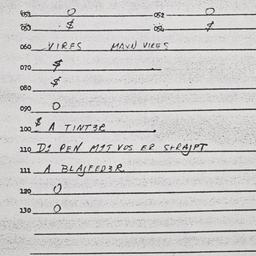 051 0 052 0
053 $ 054 $
060 VIRES MAUN VIRES
070 $
080 $
090 0
100 $ A TINT3R
110 DI PEN MIT VOS ER SHRAJPT
111 A BLAJFED3R
120 0
130 0